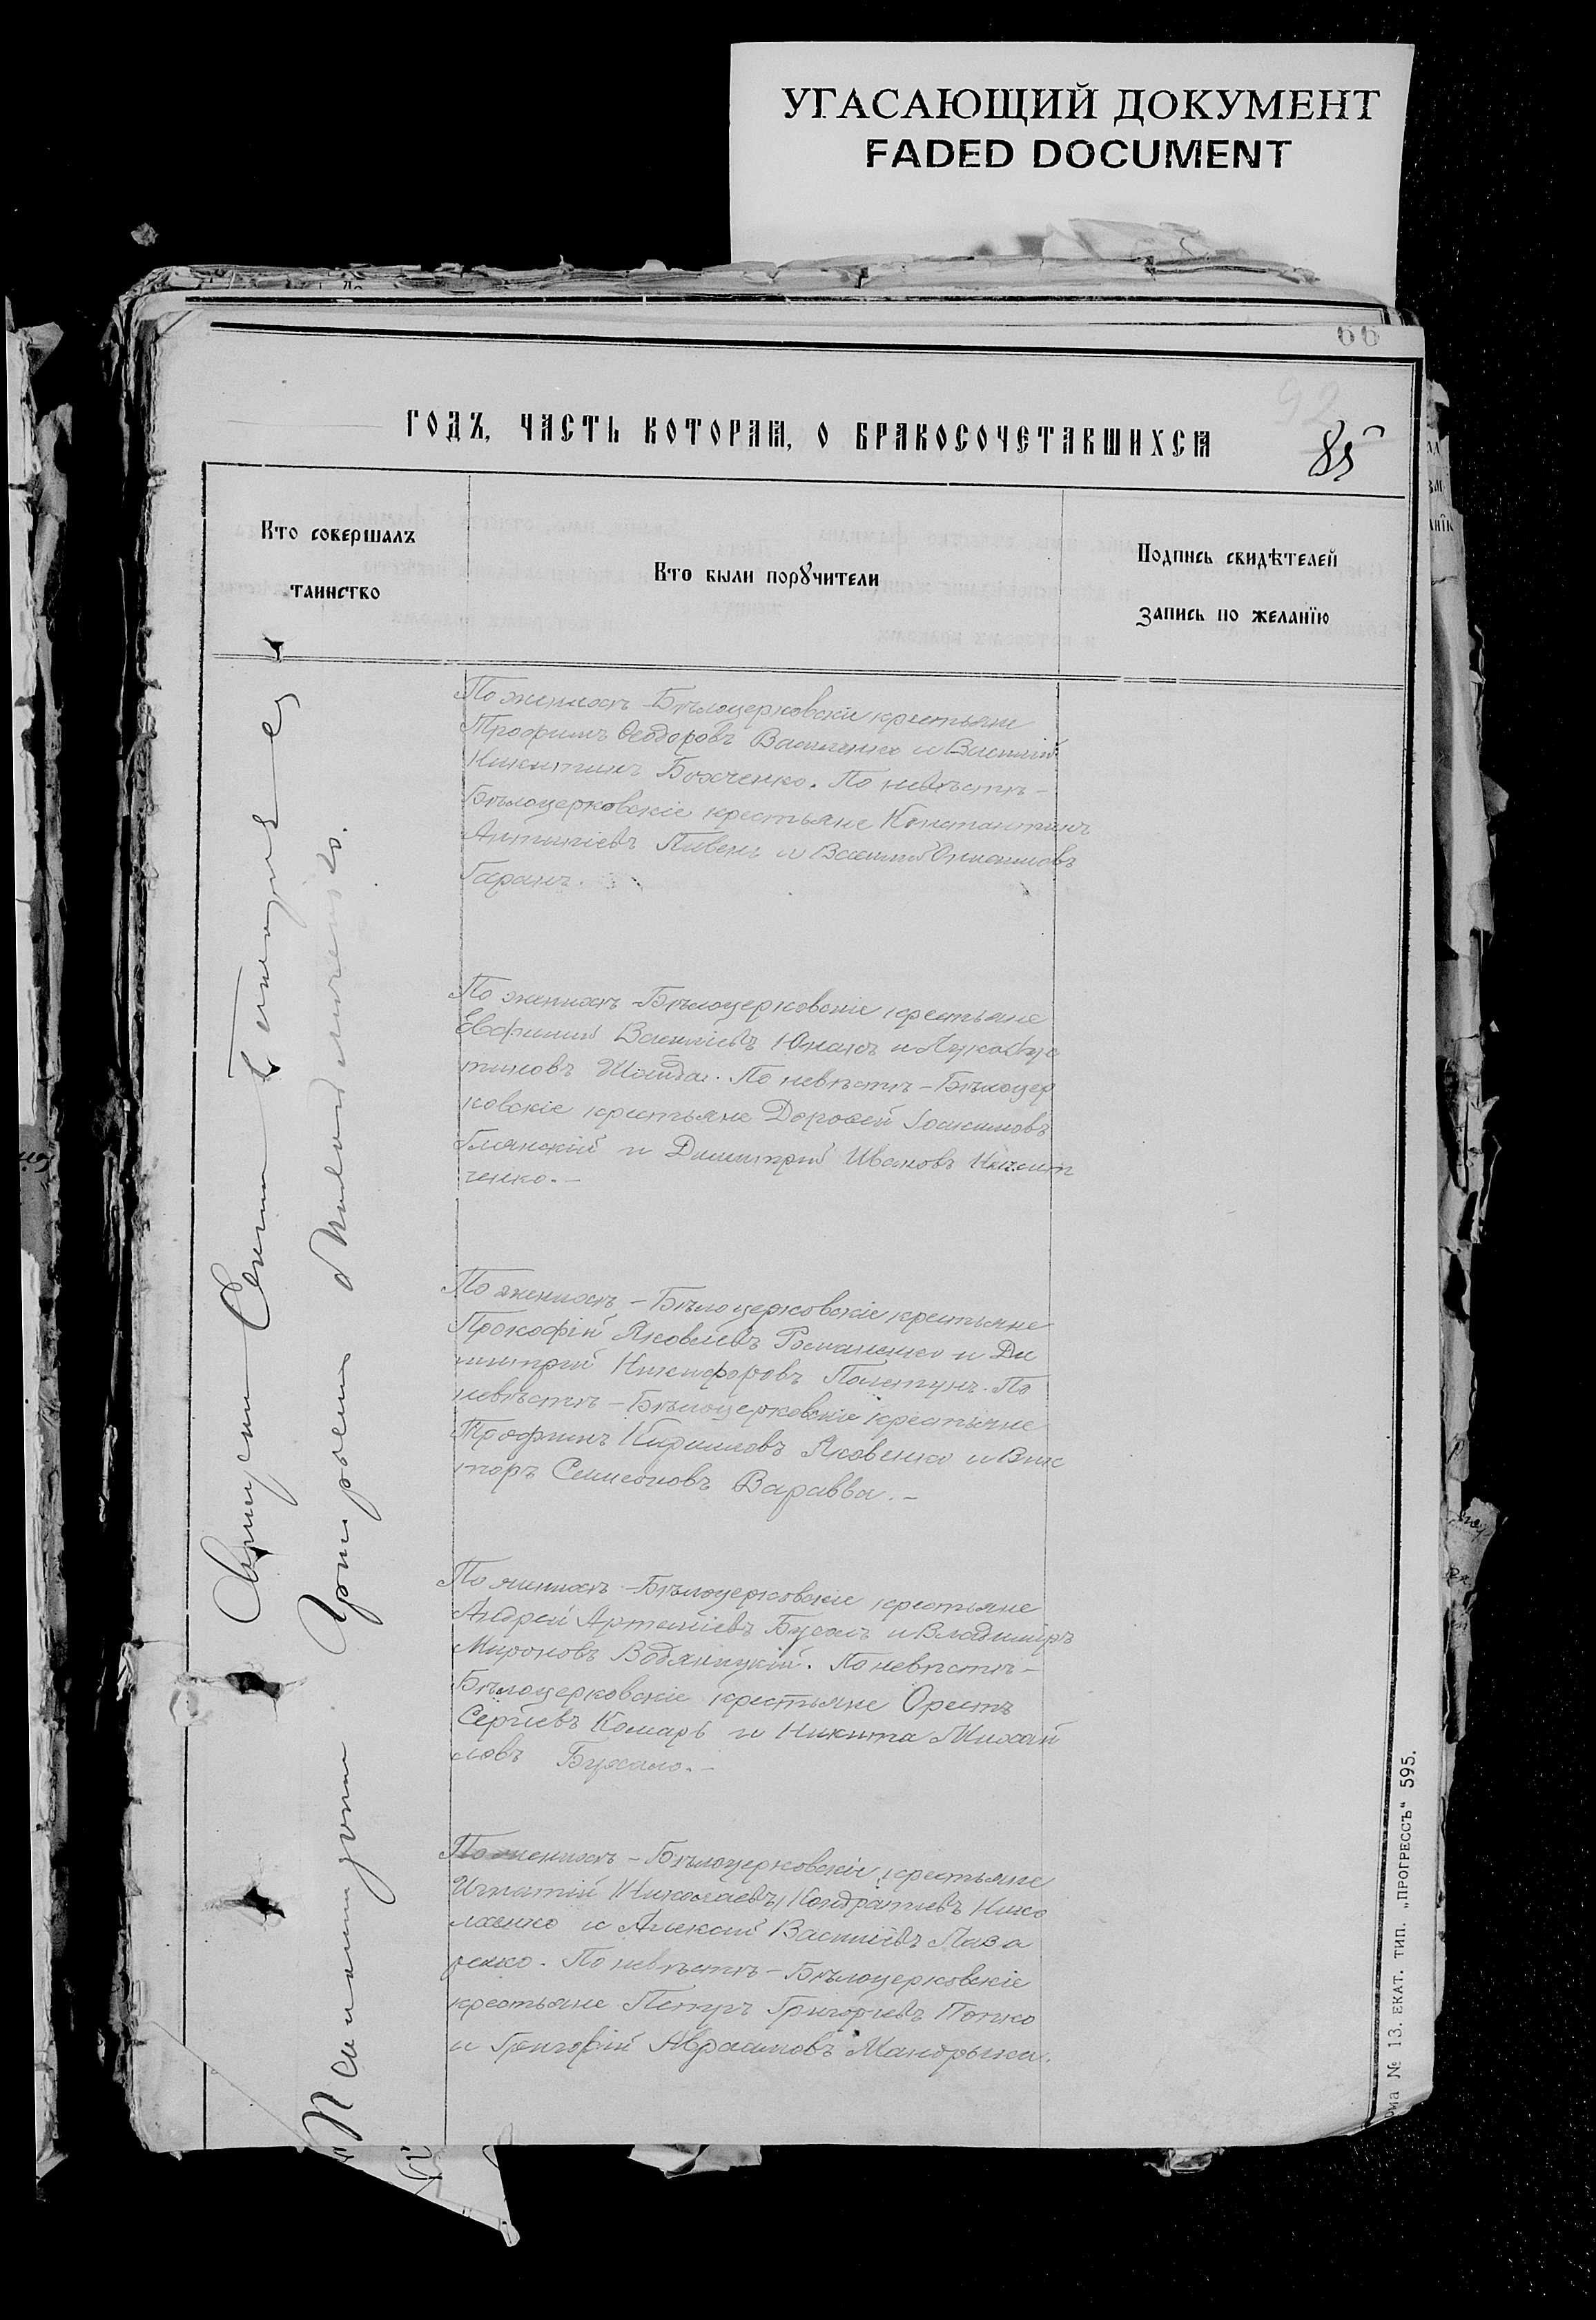 УГАСАЮЩИЙ ДОКУМЕНТ
FADED DOCUMENT
66
92
85
ГОДЪ, ЧАСТЬ ВТОРАѦ, О БРАКОСОЧЕТАВШИХСѦ
Кто совершалъ
таинство
Кто были порꙋчители
Подпись свидѣтелей
запись по желанїю
Священникъ
По женихѣ - Бѣлоцерковскіе крестьяне
Трофимъ Ѳеодоровъ Василенко и Василій
Никитинъ Божченко. По невѣстѣ -
Бѣлоцерковскіе крестьяне Константинъ
Антипіевъ Пивень и Василій
Гаранъ.
По женихѣ - Бѣлоцерковскіе крестьяне
Евфимій Василіевъ Юнакъ и Лука
тиновъ Шайда. По невѣстѣ - Бѣлоцер
ковскіе крестьяне Дороѳей Іоакимовъ
Глянскій и Димитрій Ивановъ
ченко. -
По женихѣ - Бѣлоцерковскіе крестьяне
Прокофій Яковлевъ Романенко и Ди
митрій Никифоровъ Полетунъ. По
невѣстѣ - Бѣлоцерковскіе крестьяне
Трофимъ Кириловъ Яковенко и Вик
торъ Симеоновъ Варавва. -
По женихѣ - Бѣлоцерковскіе крестьяне
Андрей Артеміевъ Бусалъ и Владиміръ
Мироновъ Водяницкій. По невѣстѣ -
Бѣлоцерковскіе крестьяне Орестъ
Сергіевъ Комаръ и Никита Михай
ловъ Бухало. -
По женихѣ - Бѣлоцерковскіе крестьяне
Игнатій Николаевъ, Кондратіевъ Нико
лаенко и Алексій Василіевъ Лаза
ренко. По невѣстѣ - Бѣлоцерковскіе
крестьяне Петръ Григоріевъ Попко
и Григорій Авраамовъ Мандрыка.
№ 13. ЕКАТ. ТИП. „ПРОГРЕССЪ“ 595.